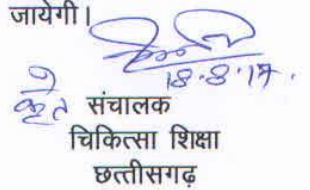 जायेगी।
18.8.17.
कृते संचालक
चिकित्सा शिक्षा
छत्तीसगढ़